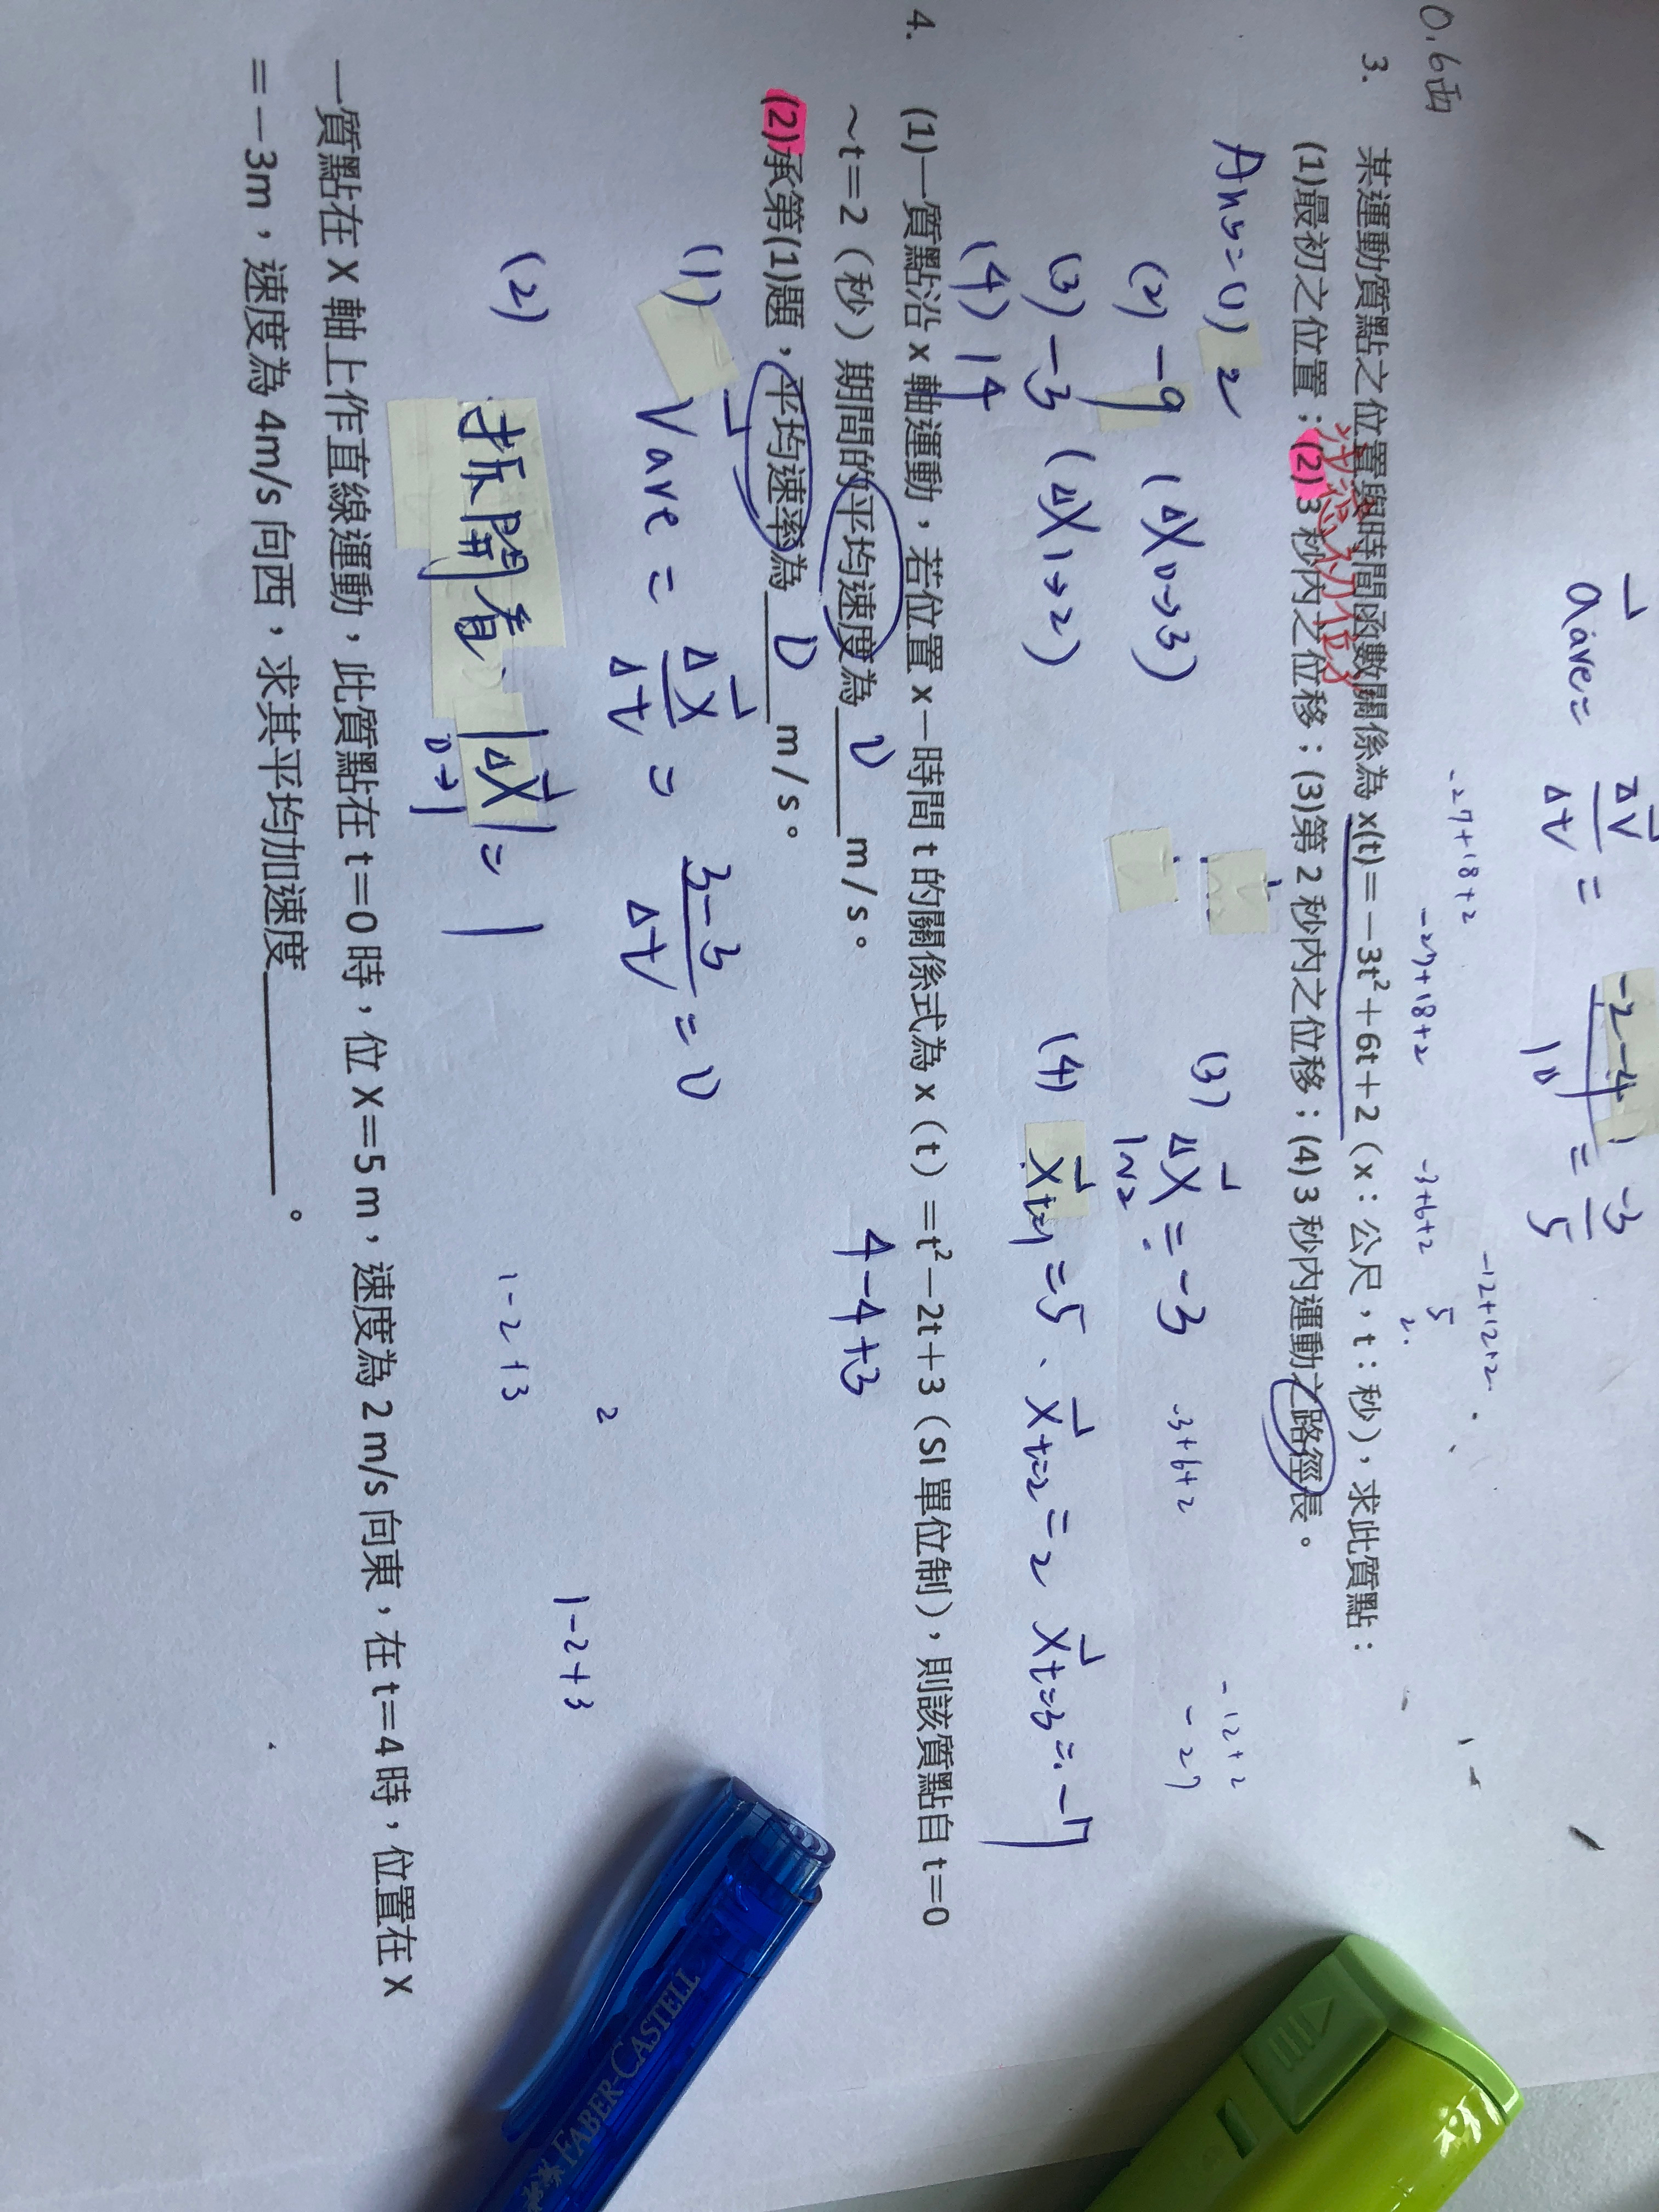 a ave = Δv/Δt = -2-4/10 = -3/5
0.6西
-27+18+2
-12+12+2
-27+18+2
-3+6+2
5
2
3. 某運動質點之位置與時間函數關係為 x(t)=-3t²+6t+2(x:公尺,t:秒),求此質點:
(1)最初之位置;(2)3 秒內之位移;(3)第 2 秒內之位移;(4)3 秒內運動之路徑長。
Ans=(1) 2
(2) -9 (ΔX 0→3)
(3) -3 (ΔX 1→2)
(4) 14
(3) ΔX 1~2 = -3
-3+6+2
-12+2
-27
(4) X t=1 =5、X t=2 =2 X t=3 =-7
4. (1)一質點沿 x 軸運動,若位置 x-時間 t 的關係式為 x(t)=t²-2t+3(SI 單位制),則該質點自 t=0
~t=2(秒)期間的平均速度為 0 m/s。
4-4+3
(2)承第(1)題,平均速率為 D m/s。
(1) Vave = ΔX/Δt = 3-3/Δt = 0
2
1-2+3
(2) 拆開看、|ΔX| 0→1 = 1
1-2+3
一質點在 X 軸上作直線運動,此質點在 t=0 時,位 X=5 m,速度為 2 m/s 向東,在 t=4 時,位置在 X
=-3m,速度為 4m/s 向西,求其平均加速度________。
FABER-CASTELL